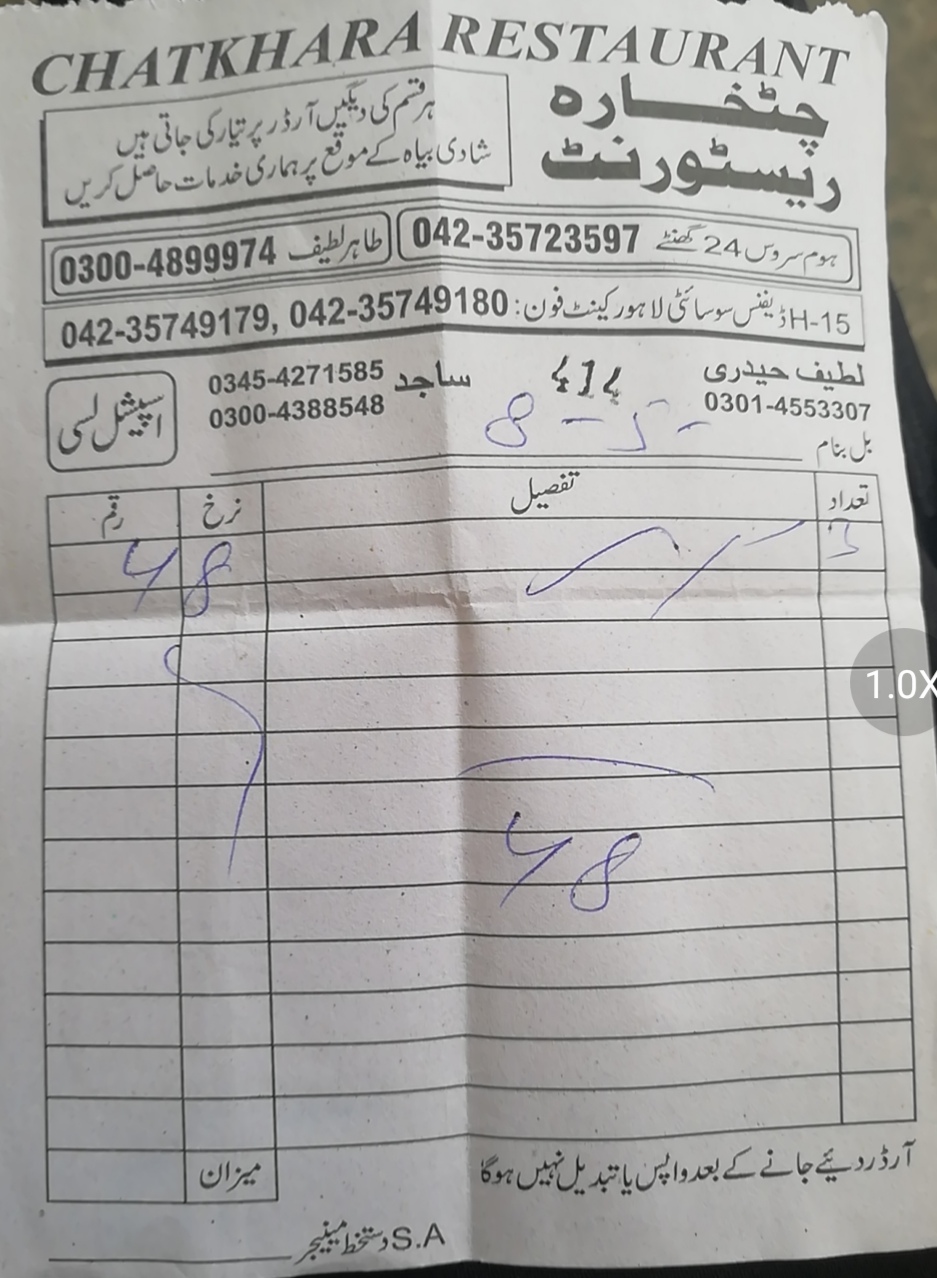 CHATKHARA RESTAURANT
چٹخارہ
ریسٹورنٹ
ہر قسم کی دیگیں آرڈر پر تیار کی جاتی ہیں
شادی بیاہ کے موقع پر ہماری خدمات حاصل کریں
ہوم سروس 24 گھنٹے 042-35723597
طاہر لطیف 0300-4899974
H-15 ڈیفنس سوسائٹی لاہور کینٹ فون: 042-35749180, 042-35749179
لطیف حیدری
0301-4553307
ساجد 0345-4271585
0300-4388548
اسپیشل لسی
8-5-
بل بنام
تعداد تفصیل نرخ رقم
3 48
48
میزان
آرڈر دئیے جانے کے بعد واپس یا تبدیل نہیں ہوگا
S.A دستخط مینیجر
1.0X